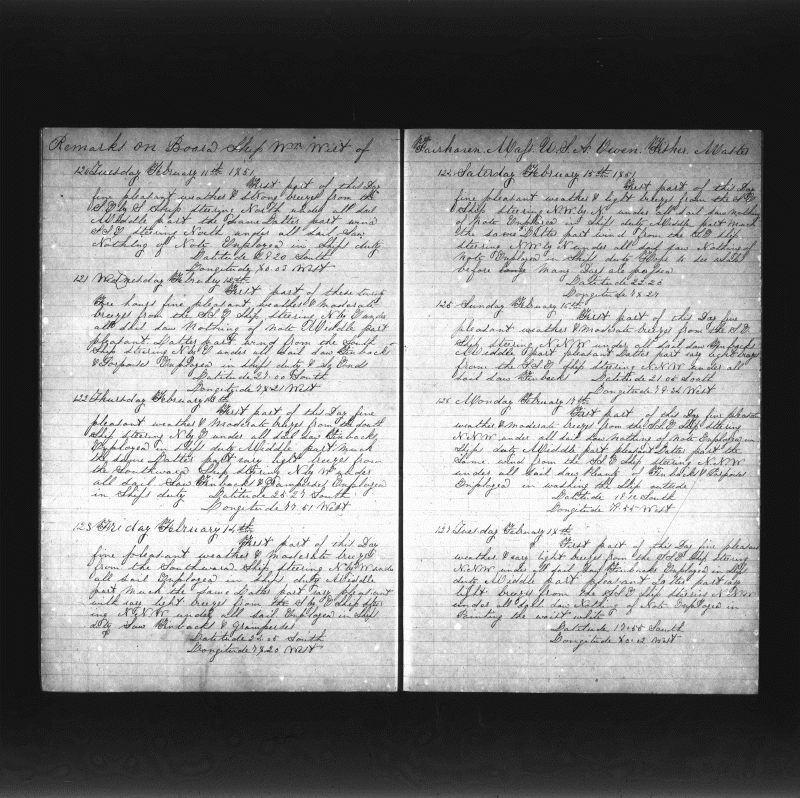 Remarks on Board Ship Wm Wirt of
120 Tuesday February 11th 1851
First part of this Day
fine pleasant weather & strong breezes from the
S.E by S Ship steering North under all sail
Middle part the Same Latter part wind
S.S.E steering North under all sail Saw
Nothing of Note Employed in Ships duty
Latitude 28.20 South
Longitude 80.03 West
121 Wednesday February 12th
First part of these twenty
Four hours fine pleasant weather & moderate
breezes from the S.S.E Ship steering N by E under
all sail saw Nothing of Note Middle part
pleasant Latter part wind from the South
Ship steering N by E under all sail saw Finbacks
& Porpoises Employed in ships duty &
Latitude 2 .00 South
Longitude 78.21 West
122 Thursday February 13th
First part of this Day fine
pleasant weather & Moderate breezes from the South
Ship steering N by E under all sail saw Finbacks
Employed in Ships duty Middle part Much
the same Latter part vary light breezes from
the Southward Ship steering N by W under
all sail Saw Finbacks & Grampuses Employed
in Ships duty Latitude 25.27 South
Longitude 77.51 West
123 Friday February 14th
First part of this Day
fine pleasant weather & Moderate breezes
from the Southward Ship steering N by W under
all sail Employed in ships duty Middle
part Much the same Latter part vary pleasant
with vary light breezes from the S by E Ship steer
ing N.N.W under all sail Employed in Ships
Duty Saw Finbacks & Grampuses
Latitude 2 .05 South
Longitude 78.20 West
Fairhaven Mass U.S.A Owen Fisher Master
124 Saturday February 15th 1851
First part of this Day
fine pleasant weather & light breezes from the S.E
Ship steering N.W by N under all sail saw nothing
of Note Employed in Ships duty Middle part Much
the same Latter part wind from the S.E Ship
steering N.W by N under all sail saw Nothing of
Note Employed in Ships duty Hope to see whales
before many Days are passed
Latitude 22.20
Longitude 78.27
125 Sunday February 16th
First part of this Day fine
pleasant weather & Moderate breezes from the S.E
Ship steering N.N.W under all sail saw Finbacks
Middle part pleasant Latter part vary light breezes
from the S.S.E Ship steering N.N.W under all
sail saw Finback Latitude 21.05 South
Longitude 78.34 West
126 Monday February 17th
First part of this Day fine pleasant
weather & moderate breezes from the S.S.E Ship steering
N.N.W under all sail saw Nothing of Note Employed in
Ships duty Middle part pleasant Latter part the
same wind from the S.E Ship steering N.N.W
under all sail saw plenty of Finbacks & Porpoises
Employed in washing the Ship outside
Latitude 19.12 South
Longitude 79.55 West
127 Tuesday February 18th
First part of this Day fine pleasant
weather & vary light breezes from the S.S.E Ship steering
N.N.W under all sail saw Finbacks Employed in Ships
duty Middle part pleasant Latter part vary
light breezes from the S.S.E Ship steering N.N.W
under all sail saw Nothing of Note Employed in
Painting the waist white
Latitude 17.55 South
Longitude 80.02 West